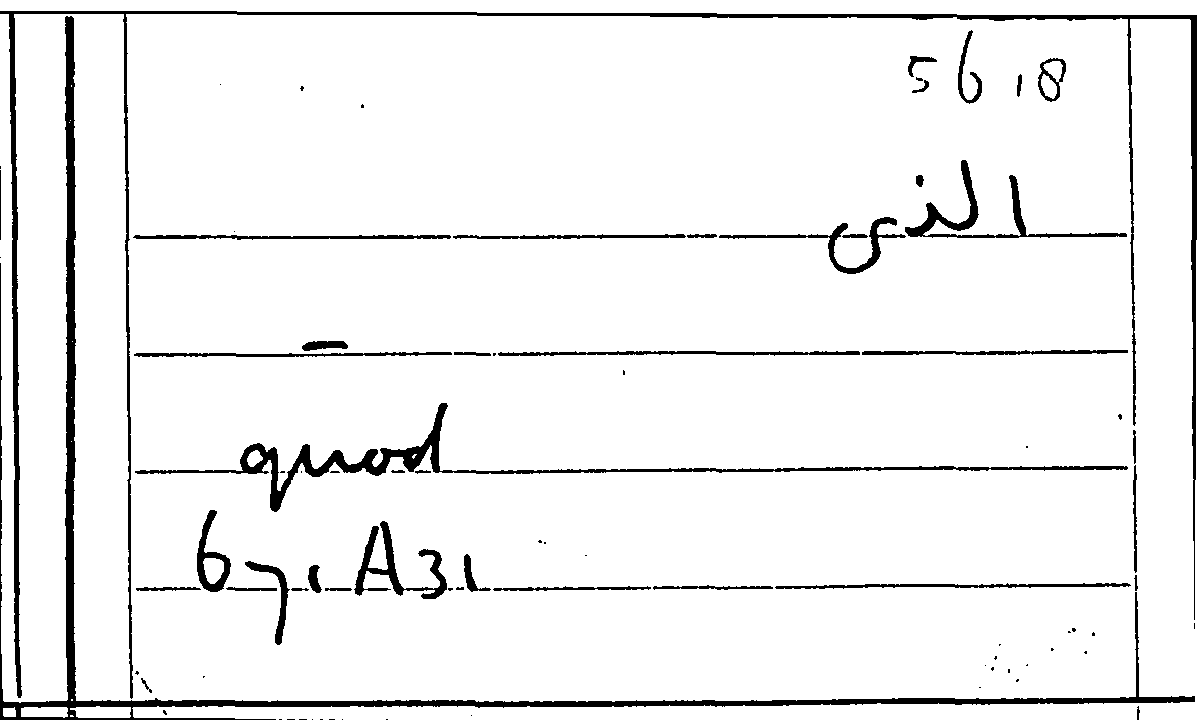 56.8
الذى
—
quod
67, A31